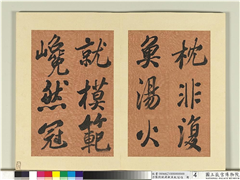 枕非復
湯火
就模範
巉然冠
4
國立故宮博物院